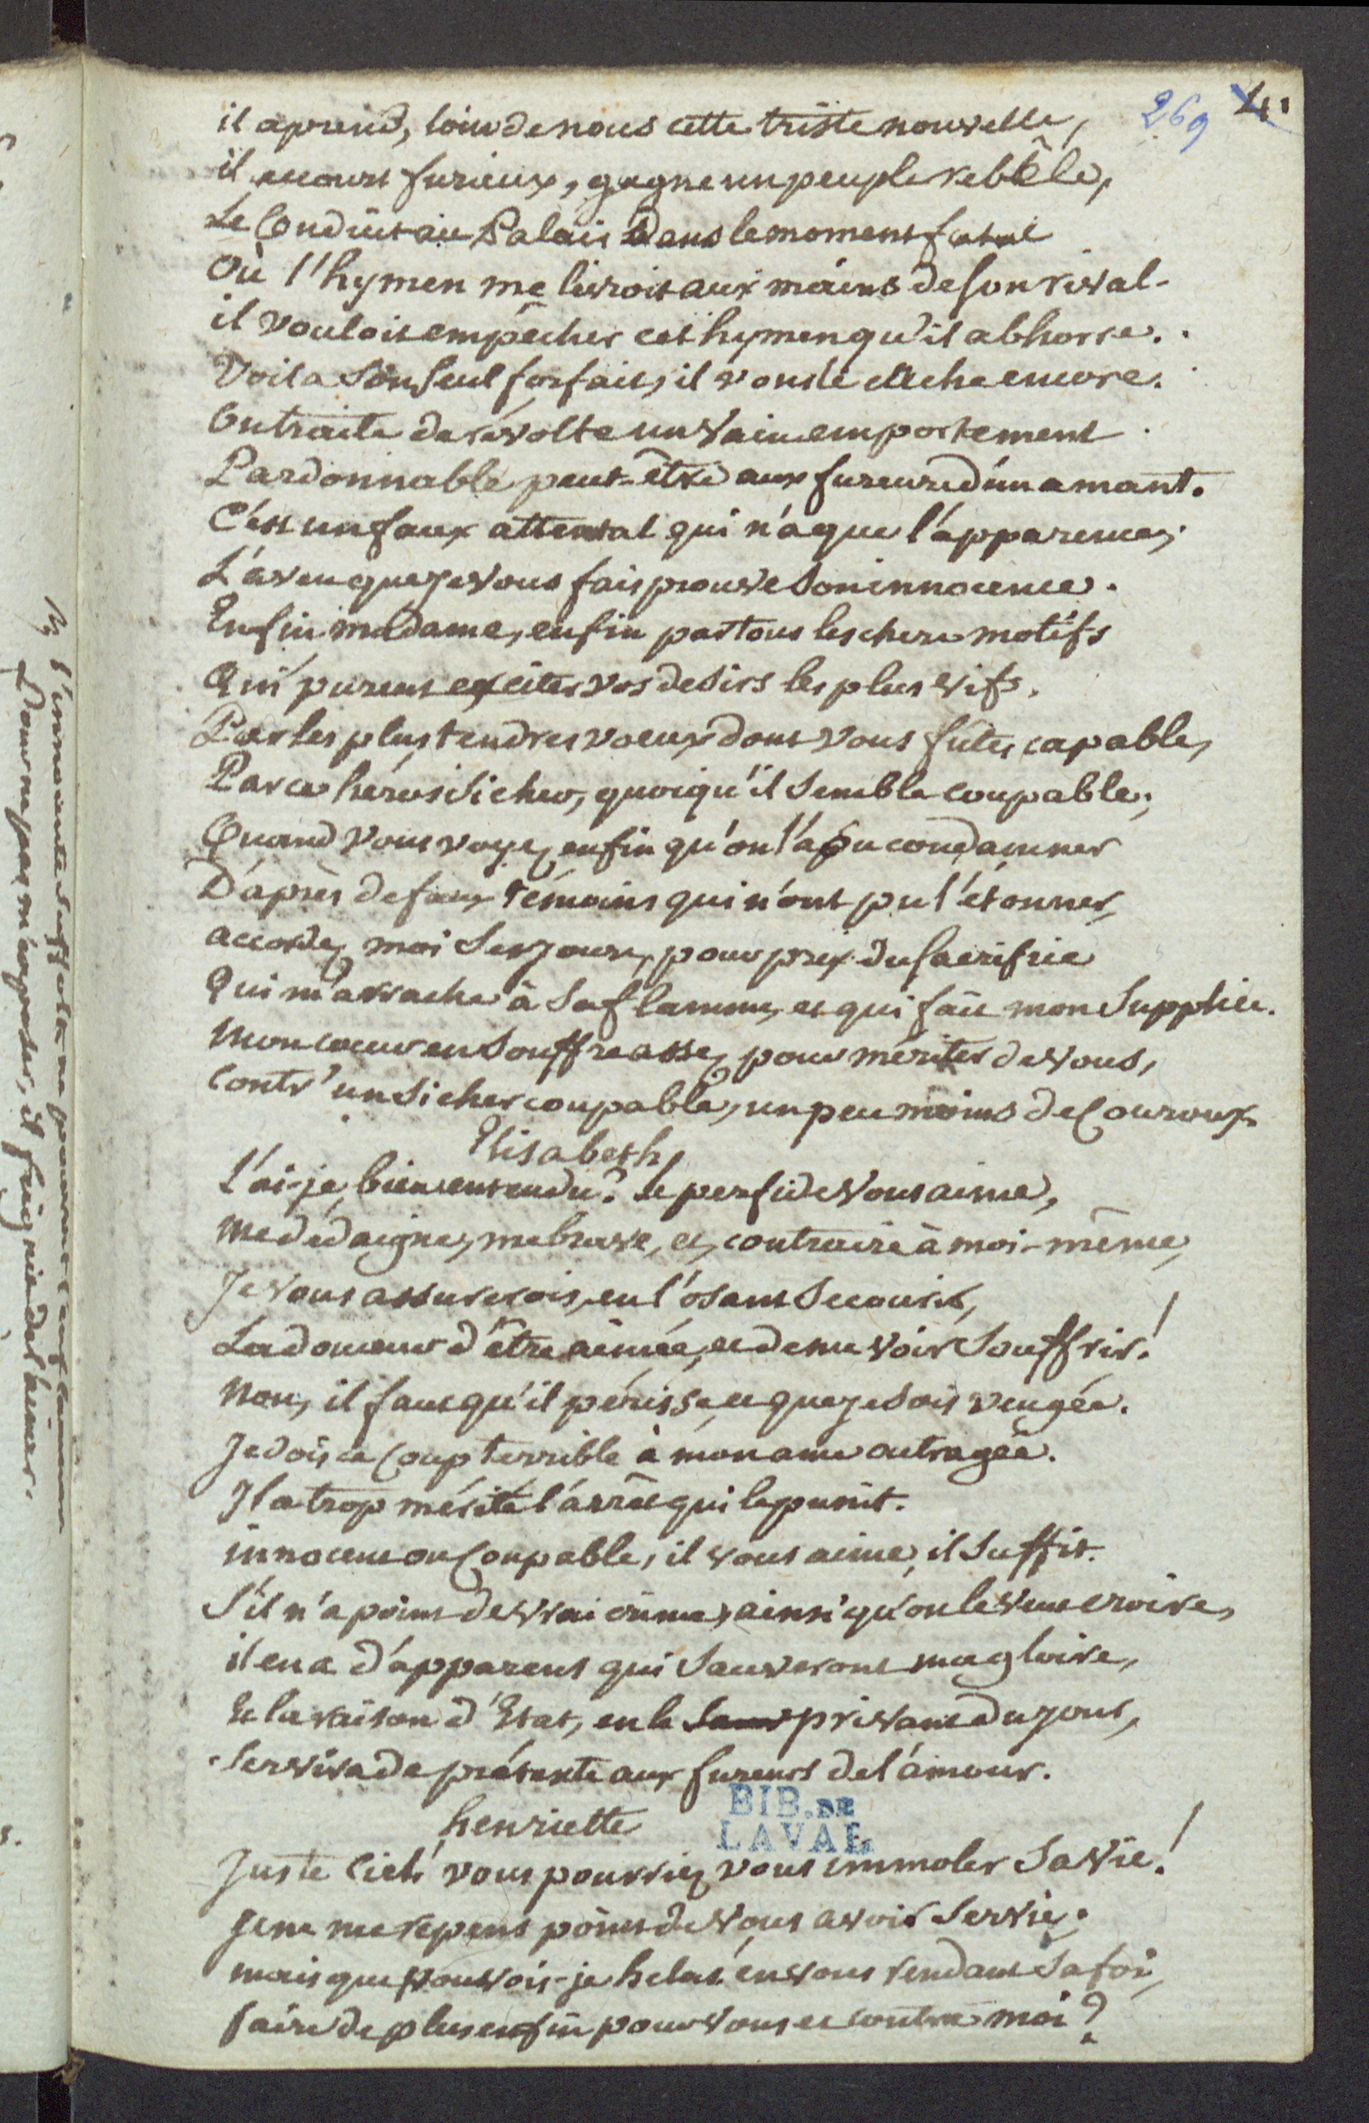 269 41
il aprend, loin de nous cette triste nouvelle,
il accourt furieux, gagne un peuple rebêle,
Le Conduit au Palais Dans le moment fatal
Où l'hymen me livroit aux mains de son rival.
il vouloit empêcher cet hymen qu'il abhorre.
Voila Son Seul forfait, il vous le cache encore.
On traite de révolte un Vain emportement
Pardonnable peut-être aux fureurs d'un amant.
C'est un faux attentat qui n'a que l'apparence;
L'aveu que je Vous fais prouve Son innocence.
Enfin madame, enfin par tous les chers motifs
Qui purent exciter vos desirs les plus vifs,
Par les plus tendres voeux dont vous fûtes capable,
Par ce héros Si cher, quoiqu'il Semble coupable,
Quand Vous voyez enfin qu'on l'a pu condamner
D'après de faux témoins qui n'ont pu l'étonner,
accordez moi Ses jours, pour prix du Sacrifice
Qui m'arrache à Sa flamme, et qui fait mon Supplice.
Mon coeur en Souffre assez pour mériter de vous,
Contr'un Si cher coupable, un peu moins de Couroux.
Elisabeth,
L'ai-je bien entendu? Le perfide Vous aime,
Me dédaigne, me brave, et, contraire à moi-même,
Je Vous assurerois, en l'osant Secourir,
La douceur d'être aimée, et de me voir Souffrir!
Non, il faut qu'il périsse, et que je Sois vengée.
Je dois ce Coup terrible à mon ame outragée.
Il a trop mérité l'arrêt qui le punit.
innocent ou Coupable, il vous aime, il Suffit.
S'il n'a point de vrai crime, ainsi qu'on le Veut croire,
il en a d'apparens qui Sauveront ma gloire,
Et la raison d'Etat, en le privant du jour,
Servira de prétexte aux fureurs de l'amour.
henriette
Juste Ciel! vous pourriez vous immoler Sa Vie!
Je ne me repens point de Vous avoir Servie.
mais que pouvois-je helas! en vous rendant Sa foi,
faire de plus enfin pour Vous et contre moi?
BIB. DE
LAVAL
L'amour ne peut n'exposer, il frémit de l'aimer.